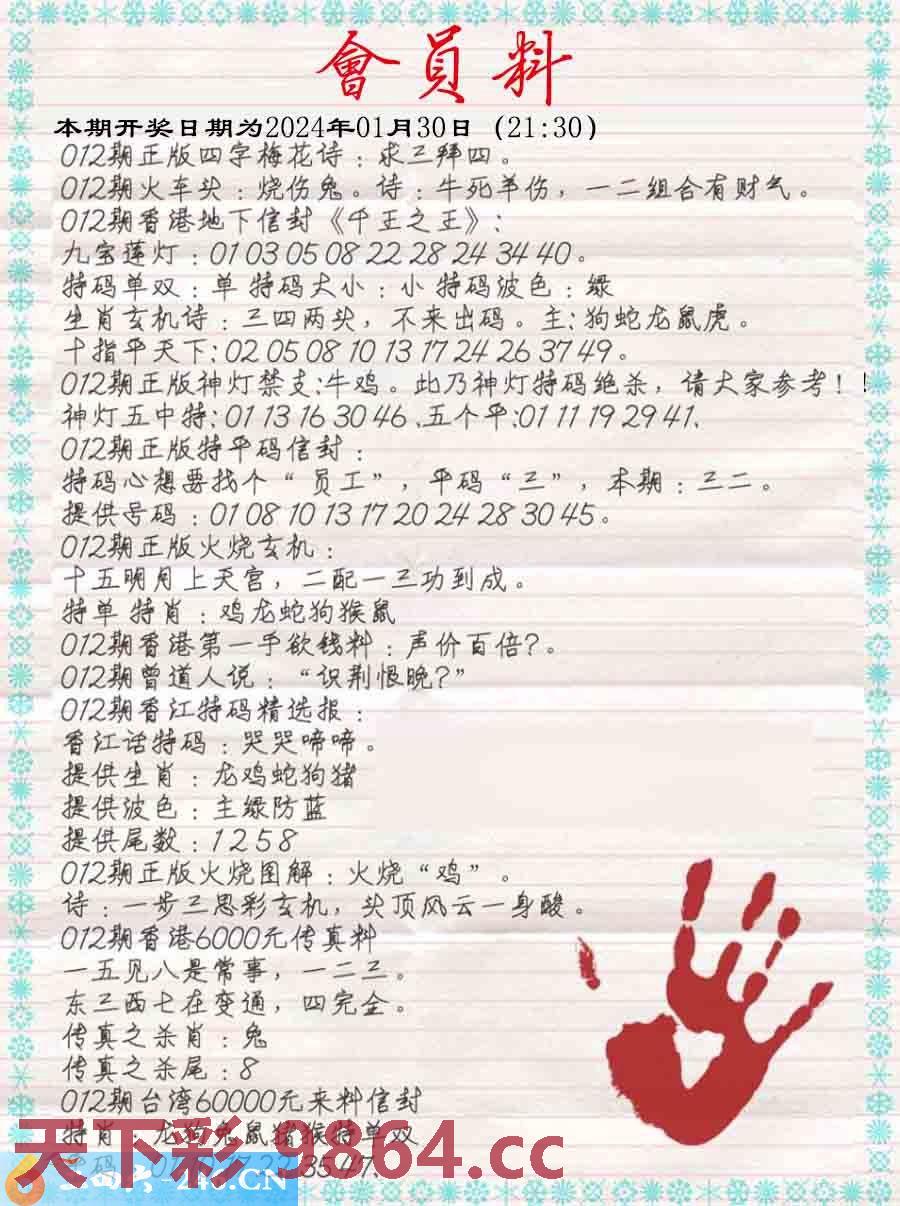 會員料
本期开奖日期为2024年01月30日（21:30）
012期正版四字梅花诗：求三拜四。
012期火车头：烧伤兔。诗：牛死羊伤，一二组合有财气。
012期香港地下信封《千王之王》：
九宝莲灯：01 03 05 08 22 28 24 34 40。
特码单双：单 特码大小：小 特码波色：绿
生肖玄机诗：三四两头，不来出码。主：狗蛇龙鼠虎。
十指平天下：02 05 08 10 13 17 24 26 37 49。
012期正版神灯禁支：牛鸡。此乃神灯特码绝杀，请大家参考！！
神灯五中特：01 13 16 30 46、五个平：01 11 19 29 41、
012期正版特平码信封：
特码心想要找个“员工”，平码“三”，本期：三二。
提供号码：01 08 10 13 17 20 24 28 30 45。
012期正版火烧玄机：
十五明月上天宫，二配一三功到成。
特单 特肖：鸡龙蛇狗猴鼠
012期香港第一手欲钱料：声价百倍？。
012期曾道人说：“识荆恨晚？”
012期香江特码精选报：
香江话特码：哭哭啼啼。
提供生肖：龙鸡蛇狗猪
提供波色：主绿防蓝
提供尾数：1 2 5 8
012期正版火烧图解：火烧“鸡”。
诗：一步三思彩玄机，头顶风云一身酸。
012期香港6000元传真料
一五见八是常事，一二三。
东三西七在变通，四完金。
传真之杀肖：兔
传真之杀尾：8
012期台湾60000元来料信封
特肖：龙狗兔鼠猪猴特单双
天下彩 9864.cc
35 47、
246.CN